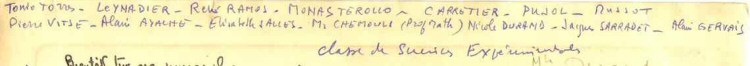 Tonio TORRS - LEYNADIER - René RAMOS - MONASTEROLLO - CARRETIER - PUJOL - MUSSOT
Pierre VITSE - Alain AYACHE - Elisabeth SALLES - Mr CHEMOULI (Prof Math) Nicole DURAND - Jacques SARRADET - Alain GERVAIS
classe de Sciences Expérimentales